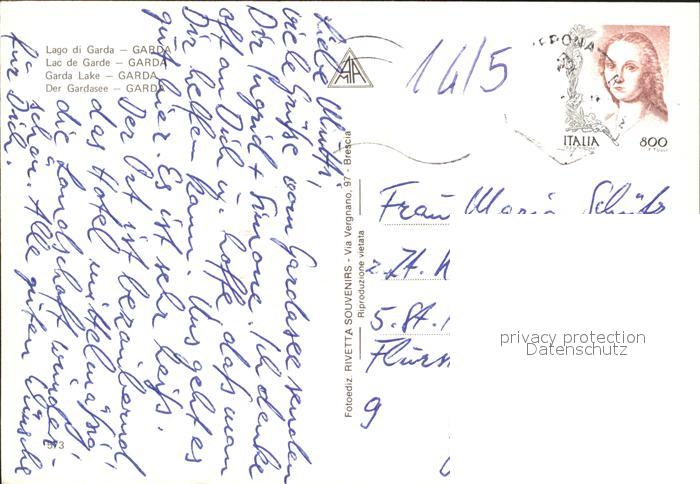 Lago di Garda — GARDA
Lac de Garde — GARDA
Garda Lake — GARDA
Der Gardasee — GARDA
Liebe Mutti,
viele Grüße vom Gardasee senden
Dir Ingrid + Simone. Ich denke
oft an Dich u. hoffe, daß man
Dir helfen kann. Uns geht es
gut hier. Es ist sehr heiß.
Der Ort ist bezaubernd
das Hotel mittelmäßig,
die Landschaft wunder-
schön. Alle guten Wünsche
für Dich.
973
Fotoediz. RIVETTA SOUVENIRS - Via Vergnano, 97 - Brescia
Riproduzione vietata
14/5
VERONA
ITALIA
800
Frau Maria Schütz
z. Zt.
5. St.
9
privacy protection
Datenschutz